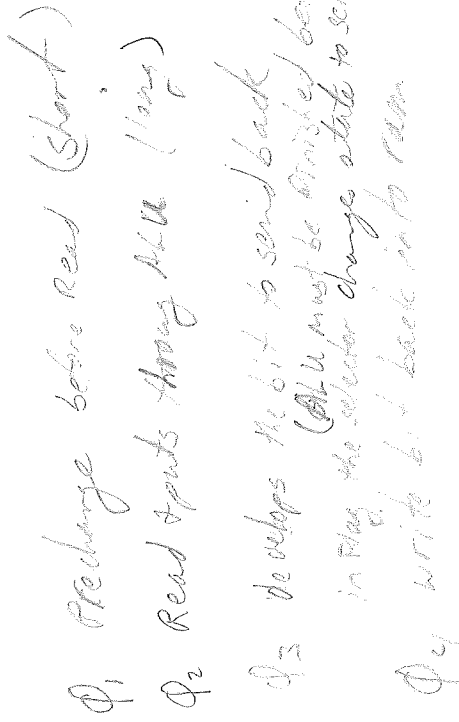 φ1 Precharge before Read (Short)
φ2 Read & puts throug ALU (long)
φ3 develops the bit to send back
(ALU must be finished be
in Flag the selector changes state to se
φ4 write bit back into ram